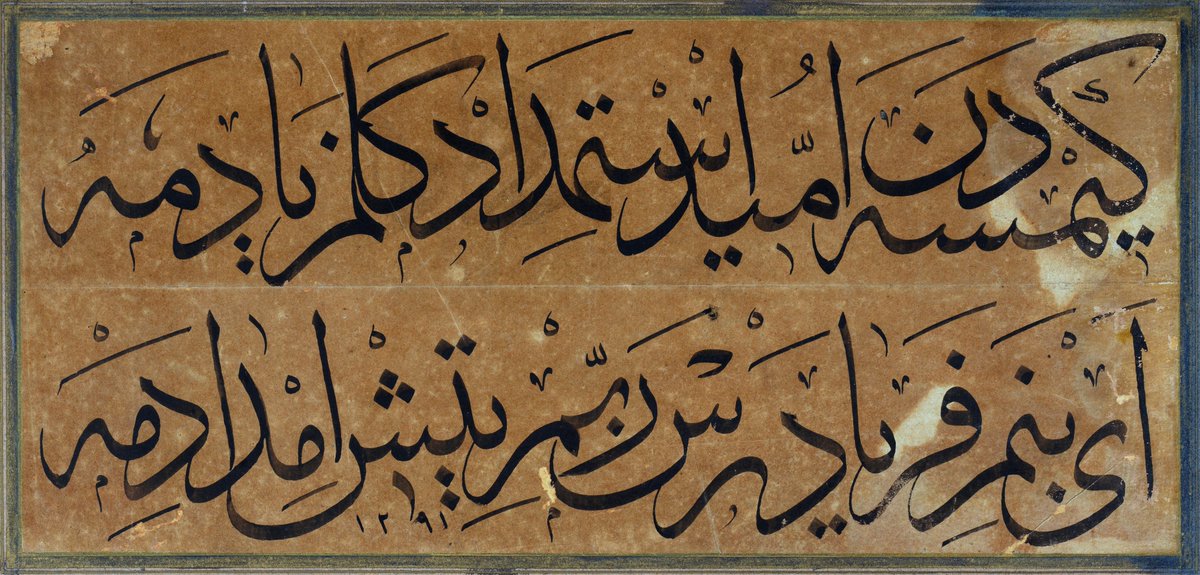 كيمسه دن اُمّيد اسْتمداد كلمز يادمه
اَى بْنم فرياد رسْ ربّم يتيش امدادمه
١٢٩١